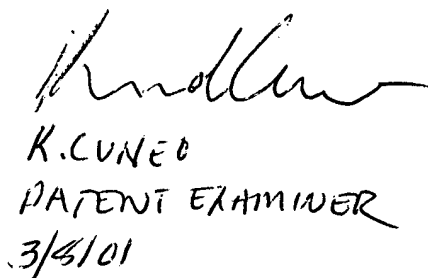 K. CUNEO
PATENT EXAMINER
3/8/01